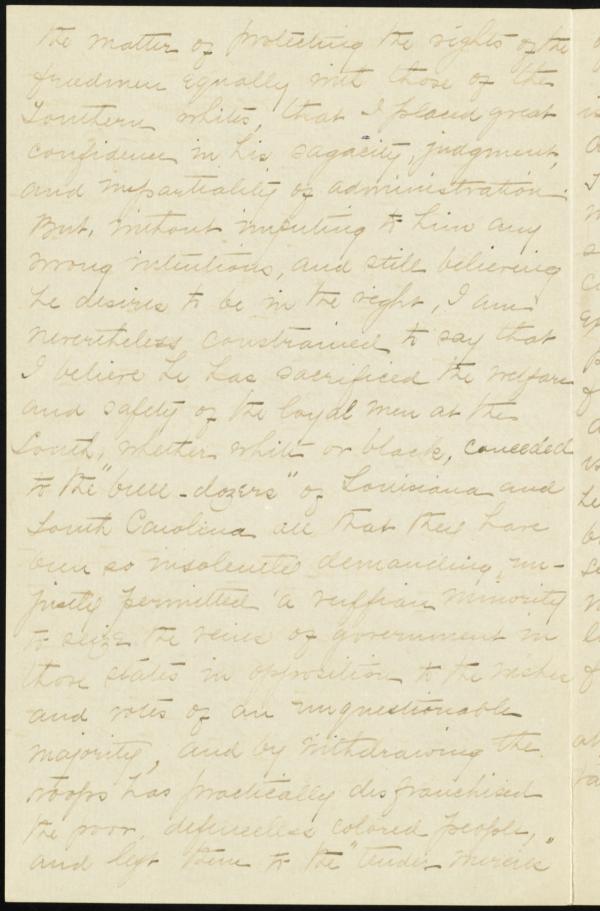 the matter of protecting the rights of the
freedmen equally with those of the
Southern whites, that I placed great
confidence in his sagacity, judgment,
and impartiality of administration.
But, without imputing to him any
wrong intentions, and still believing
he desires to be in the right, I am
nevertheless constrained to say that
I believe he has sacrificed the welfare
and safety of the loyal men at the
South, whether white or black, conceded
to the "bull-dozers" of Louisiana and
South Carolina all that they have
been so insolently demanding, un-
justly permitted a ruffian minority
to seize the reins of government in
those states in opposition to the wishes
and votes of an unquestionable
majority, and by withdrawing the
troops has practically disfranchised
the poor, defenceless colored people,
and left them to the "tender mercies"